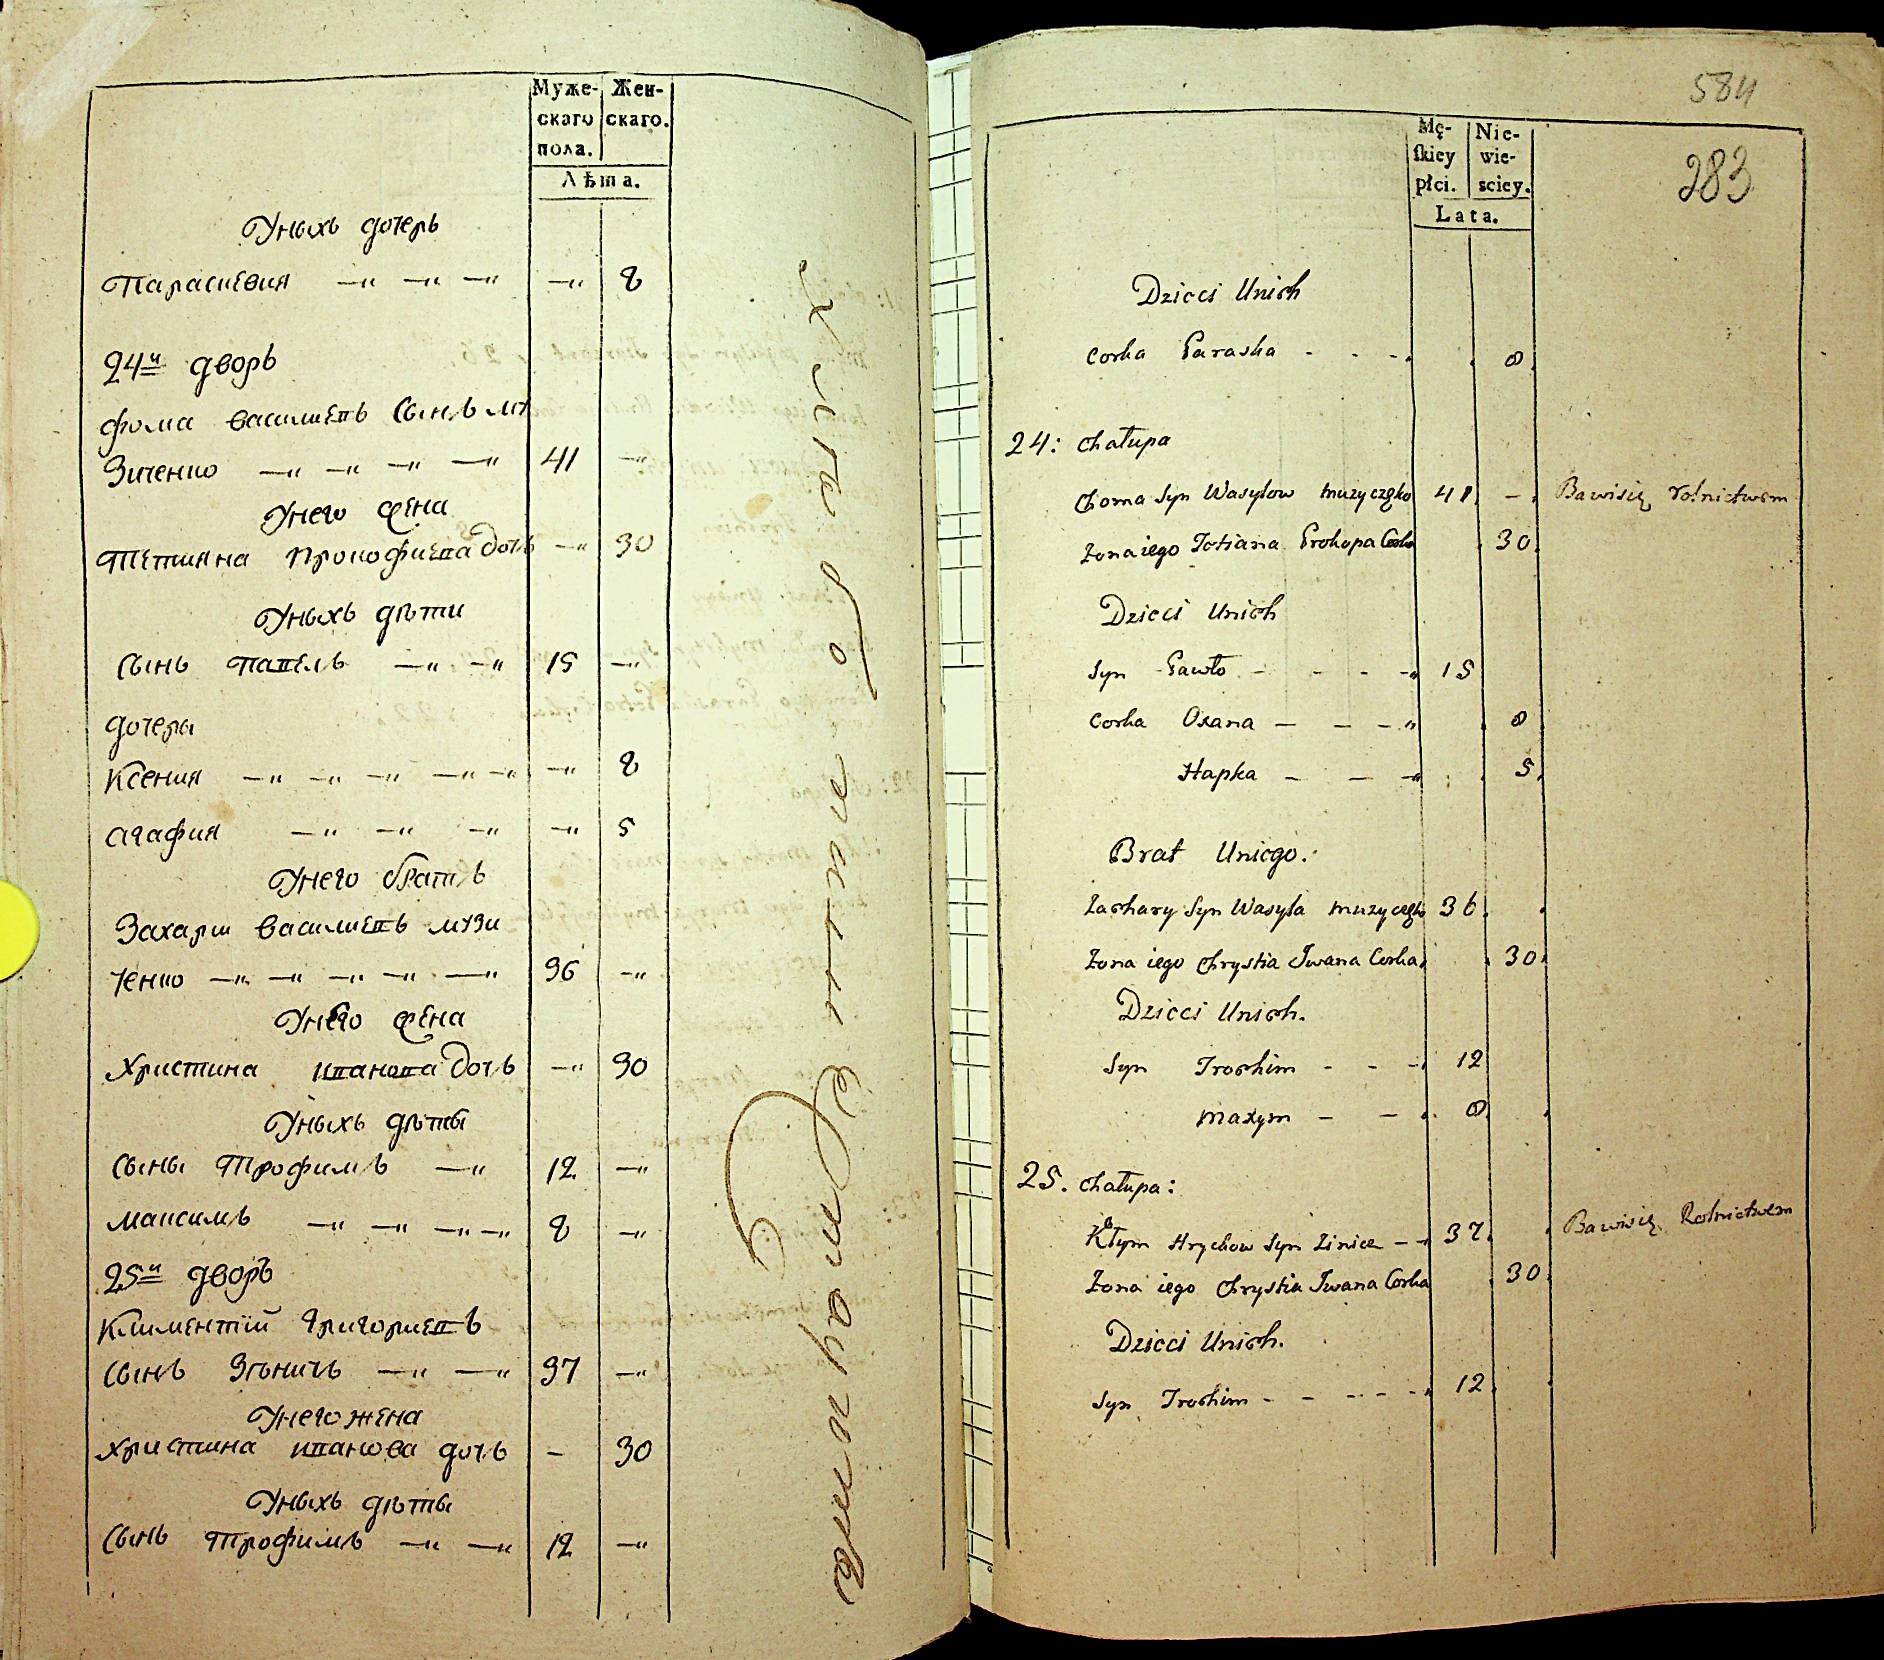 Муже-
скаго
пола.
Жен-
скаго.
Лѣта.
Уныхъ дочерь
Параскевия —„ —„ —„ —„ 8
24й дворъ
Фома василиевъ Сынъ му
Зиченко —„ —„ —„ —„ 41 —„
Унего жена
Тетияна Прокофиева дочь —„ 30
Уныхъ дѣти
Сынъ павелъ —„ —„ 15 —„
дочеры
Ксения —„ —„ —„ —„ —„ —„ 8
агафия —„ —„ —„ —„ 5
Унего братъ
Захари василиевъ музи
ченко —„ —„ —„ —„ —„ 36 —„
Унего жена
Христина иванова дочь —„ 30
Уныхъ дѣты
Сыны Трофимъ —„ 12 —„
максимъ —„ —„ —„ —„ 8 —„
25й дворъ
Климентий Григориевъ
Сынъ —„ —„ 37 —„
Унего жена
Христина иванова дочь — 30
Уныхъ дѣты
Сынъ Трофимъ —„ —„ 12 —„
584
283
Mę-
skiey
płci.
Nie-
wie-
sciey.
Lata.
Dzieci Unich
Corka Paraska - - - 8
24: Chałupa
Choma Syn Wasylow Muzyczęko 41 – Bawisię rolnictwem
Zona iego Tatiana Prokopa Corka 30
Dzieci Unich
Syn Pawło - - - - 15
Corka Oxana — — — 8
Hapka — — — 5
Brat Uniego.
Zachary Syn Wasyla Muzyczęko 36
Zona iego Chrystia Iwana Corka 30
Dzieci Unich.
Syn Trochim - - - 12
Maxym — — 8
25. Chałupa:
Kłym Hrychow Syn Zinicz — – 37 Bawisię Rolnictwem
Zona iego Chrystia Iwana Corka 30
Dzieci Unich.
Syn Trochim - - - - - 12